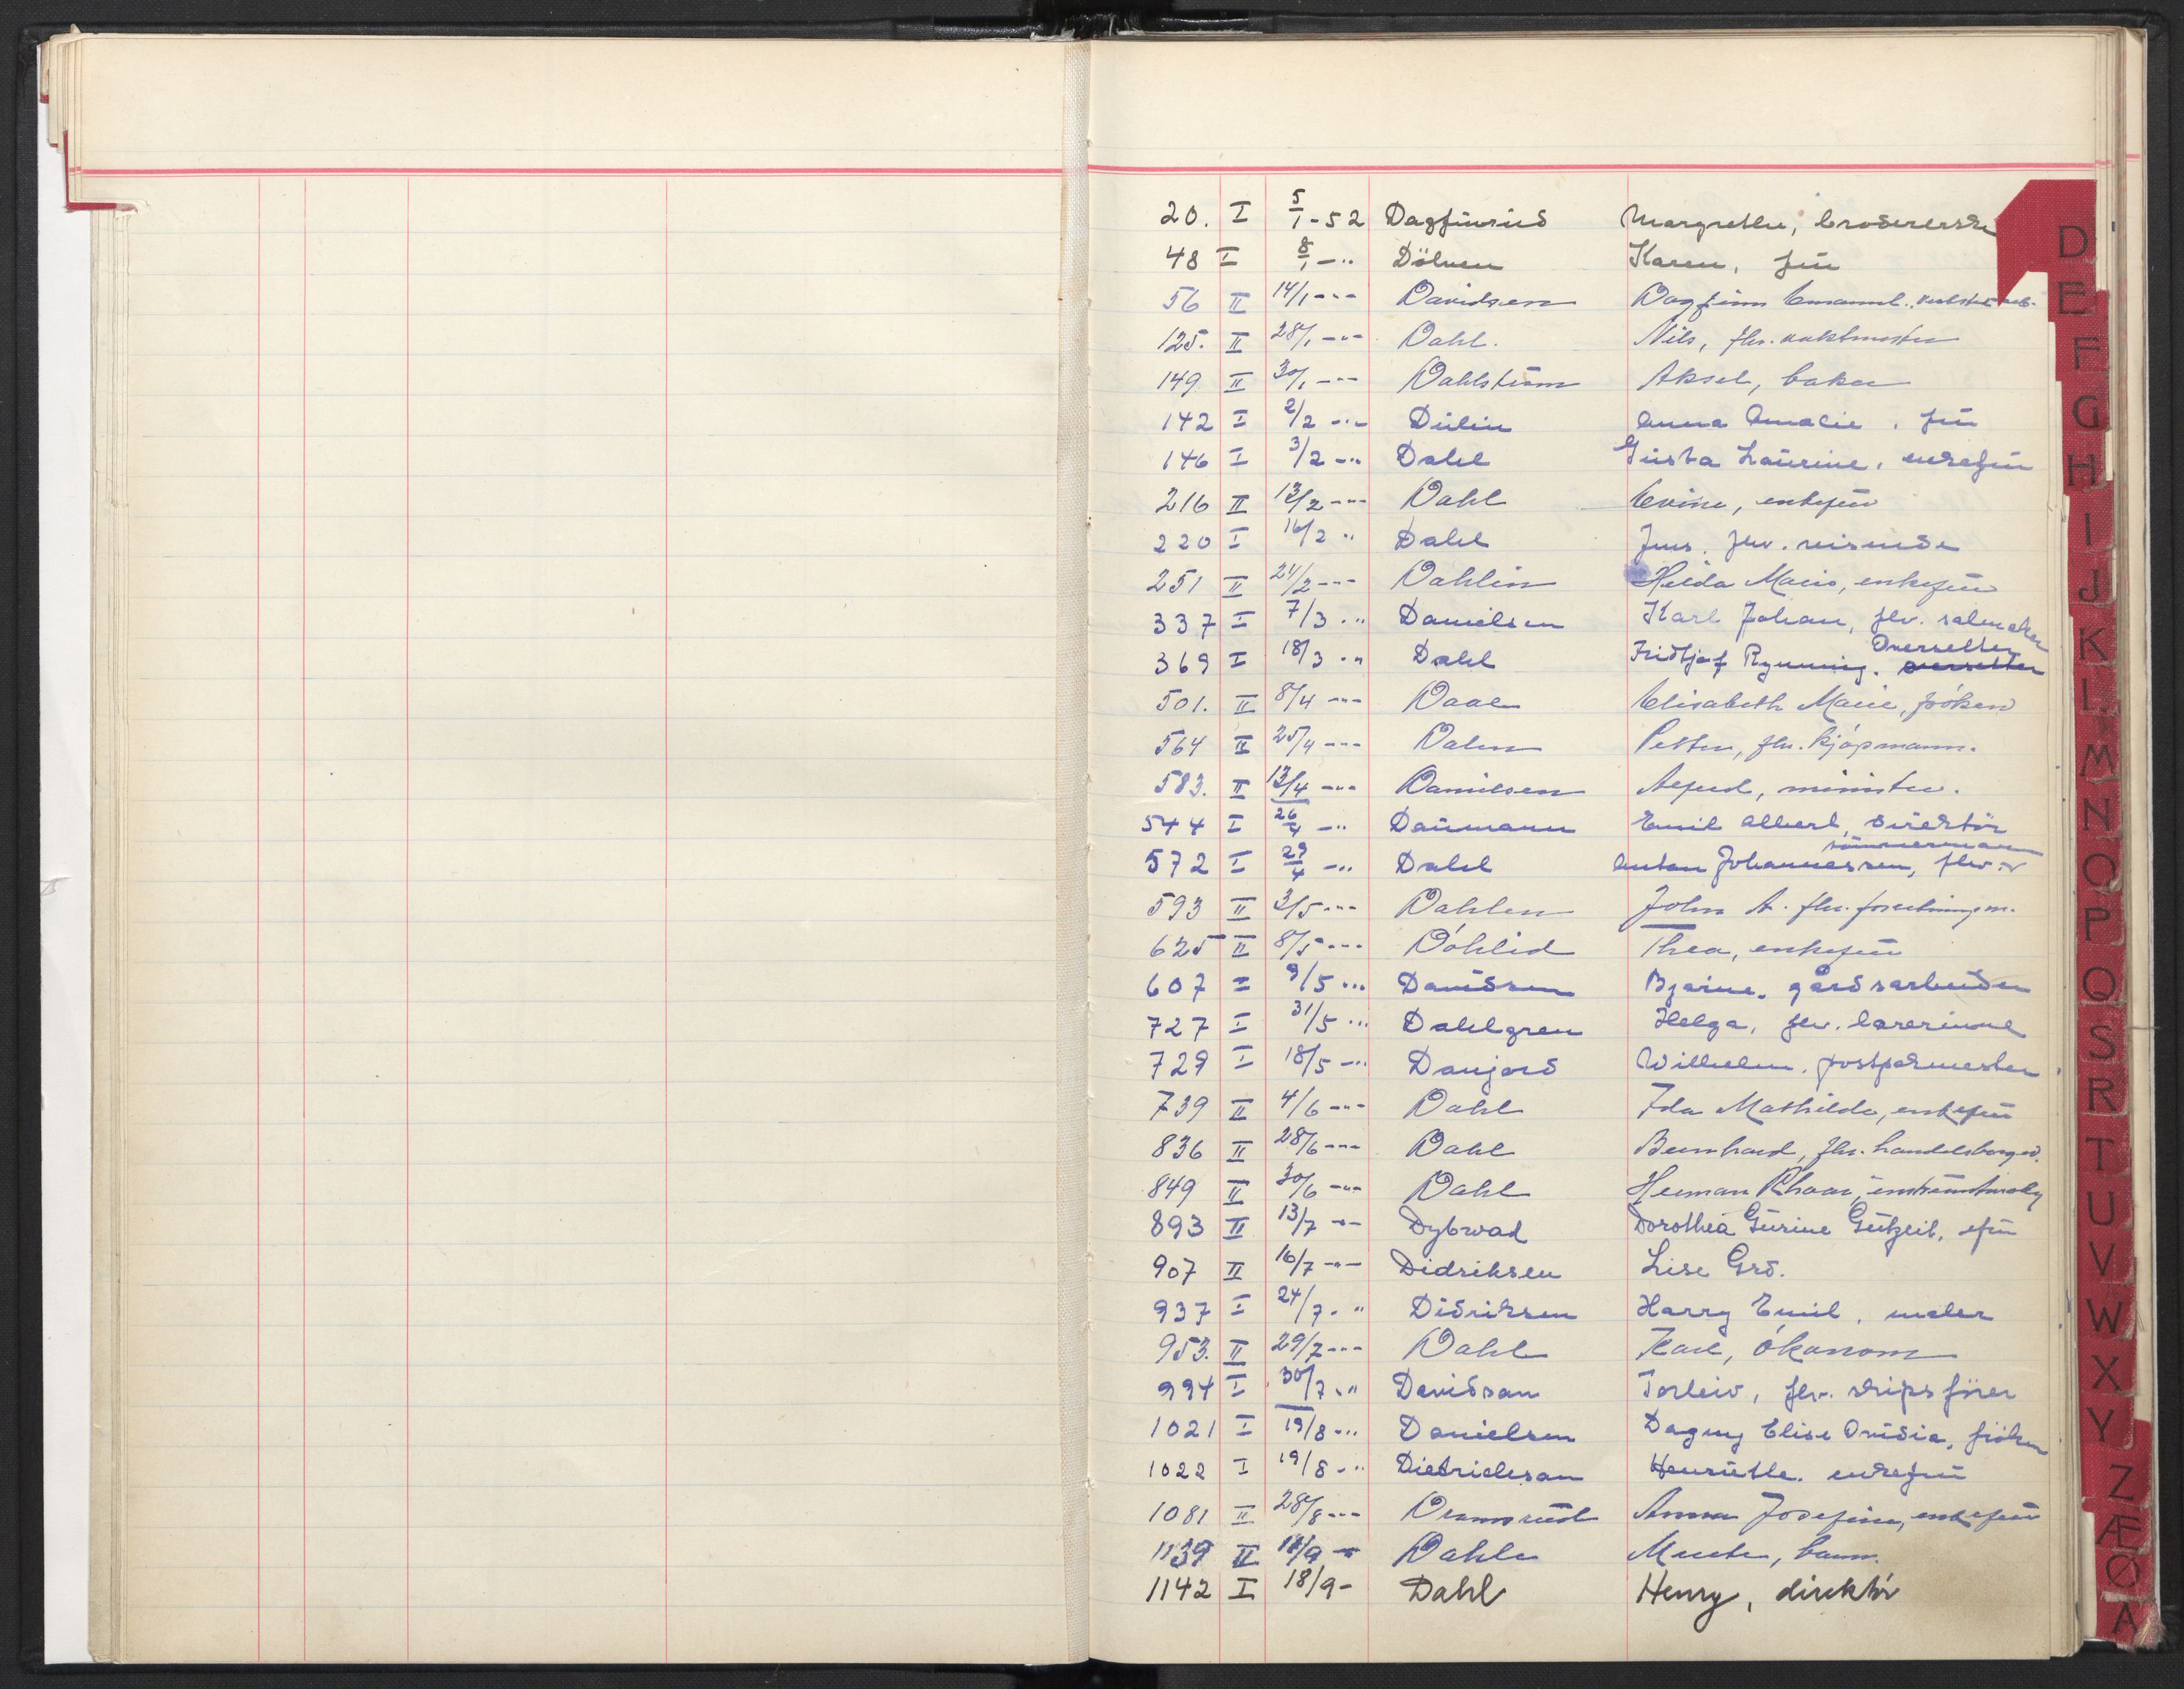 20. I 5/1-52 Dagfinrud Margrethe, brodererske
48 I 8/1 -" Dölven Karen, fru
56 II 14/1 -"- Davidsen Dagfinn Emanuel, verksted arb.
125. II 28/1 -"- Dahl. Nils, fhv. vaktmester
149 II 30/1 -"- Dahlstrøm Aksel, baker
142 I 2/2 -"- Dulin Anna Amalie, frú
146 I 3/2 -" Dahl Gusta Laurine, enkefrú
216 II 13/2 -"- Dahl Evine, enkefrú
220 I 16/2 " Dahl Jens. fhv. reisende
251 II 21/2 -"- Dahlin Hilda Marie, enkefrú
337 I 7/3 -" Danielsen Karl Johan, fhv. salmaker
369 I 18/3 -" Dahl Fridtjof Rynning. Oversetter
501. II 8/4 -"- Daae Elisabeth Marie, frøken
564 II 25/4 -"- Dalen Petter, fhv. kjøpmann.
583. II 13/4 -"- Danielsen minister.
544 I 26/4 -" Daumann Emil Albert, direktör
572 I 29/4 -" Dahl Anton Johannessen, fhv. tömmermann
593 II 3/5 -"- Dahlen John A. fhv. forretningsm.
625 II 8/5 -"- Döhlid Thea, enkefrú
607 I 9/5 -"- Davidsen Bjarne. gårdsarbeider
727 I 31/5 -"- Dahlgren Helga, fhv. lærerinne
729 I 18/5 -" Danjord Wilhelm. postpakmester
739 II 4/6 -"- Dahl Ida Mathilde, enkefrú
836 II 28/6 -"- Dahl Bernhard, fhv. handelsborger.
849 II 30/6 -"- Dahl Herman Rhoar,
893 II 13/7 -"- Dybwad Dorothea Gurine Gutzeit, efrú
907 II 16/7 -"- Didriksen Lise Grd.
937 I 24/7 -" Didriksen Harry Emil, maler
953. II 29/7 -"- Dahl Karl, økonom
994 I 30/7 -" Davidsen Torleiv, fhv. skipsfører
1021 I 19/8 -"- Danielsen Dagny Elise Ovidia, frøken
1022 I 19/8 -" Dietrichson Henriette. enkefrú
1081 II 28/8 -"- Dramsrud Anna Josefine, enkefrú
1139 II 11/9 -"- Dahle Merete, barn.
1142 I 18/9 - Dahl Henry, direktør
D
E
F
G
H
I
J
K
L
M
N
O
P
Q
S
R
T
U
V
W
X
Y
Z
Æ
Ø
A